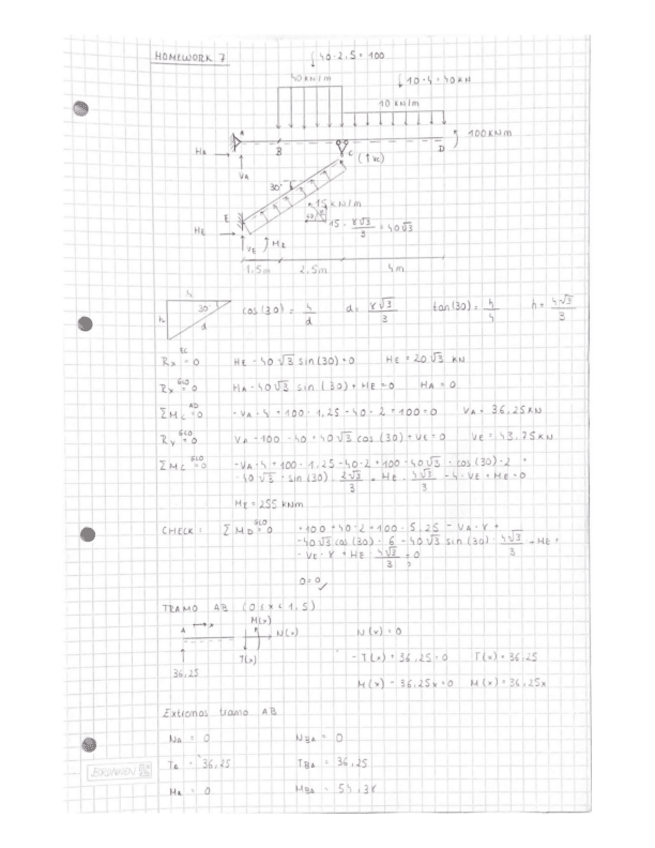 HOMEWORK 7
↓ 40·2,5 = 100
40 kN/m
↓ 10·4 = 40KN
10 KN/m
100KNm
A
B
C
(↑Vc)
D
HA
VA
30°
15 KN/m
E
15 · 8√3/3 = 40√3
HE
VE
ME
1,5m 2,5m 4m
4
30°
h
d
cos(30) = 4/d d = 8√3/3 tan(30) = h/4 h = 4√3/3
Rx EC = 0 HE - 40√3 sin(30) = 0 HE = 20√3 KN
Rx GLO = 0 HA - 40√3 sin(30) + HE = 0 HA = 0
ΣMc AD = 0 -VA·4 + 100·1,25 - 40·2 + 100 = 0 VA = 36,25KN
Ry GLO = 0 VA - 100 - 40 + 40√3 cos(30) + VE = 0 VE = 43,75KN
ΣMc GLO = 0 -VA·4 + 100·1,25 - 40·2 + 100 - 40√3 · cos(30)·2 +
- 40√3 · sin(30) · 2√3/3 + HE · 4√3/3 - 4·VE + ME = 0
ME = 255 KNm
CHECK: ΣMD GLO = 0 +100 + 40·2 + 100·5,25 - VA·8 +
-40√3 cos(30)·6 - 40√3 sin(30) · 4√3/3 + ME +
- VE·8 + HE 4√3/3 = 0
0 = 0 ✓
TRAMO AB (0 < x < 1,5)
M(x)
A
x
N(x)
T(x)
36,25
N(x) = 0
- T(x) + 36,25 = 0 T(x) = 36,25
M(x) - 36,25x = 0 M(x) = 36,25x
Extremos tramo AB
NA = 0 NBA = 0
TA = 36,25 TBA = 36,25
MA = 0 MBA = 54,38